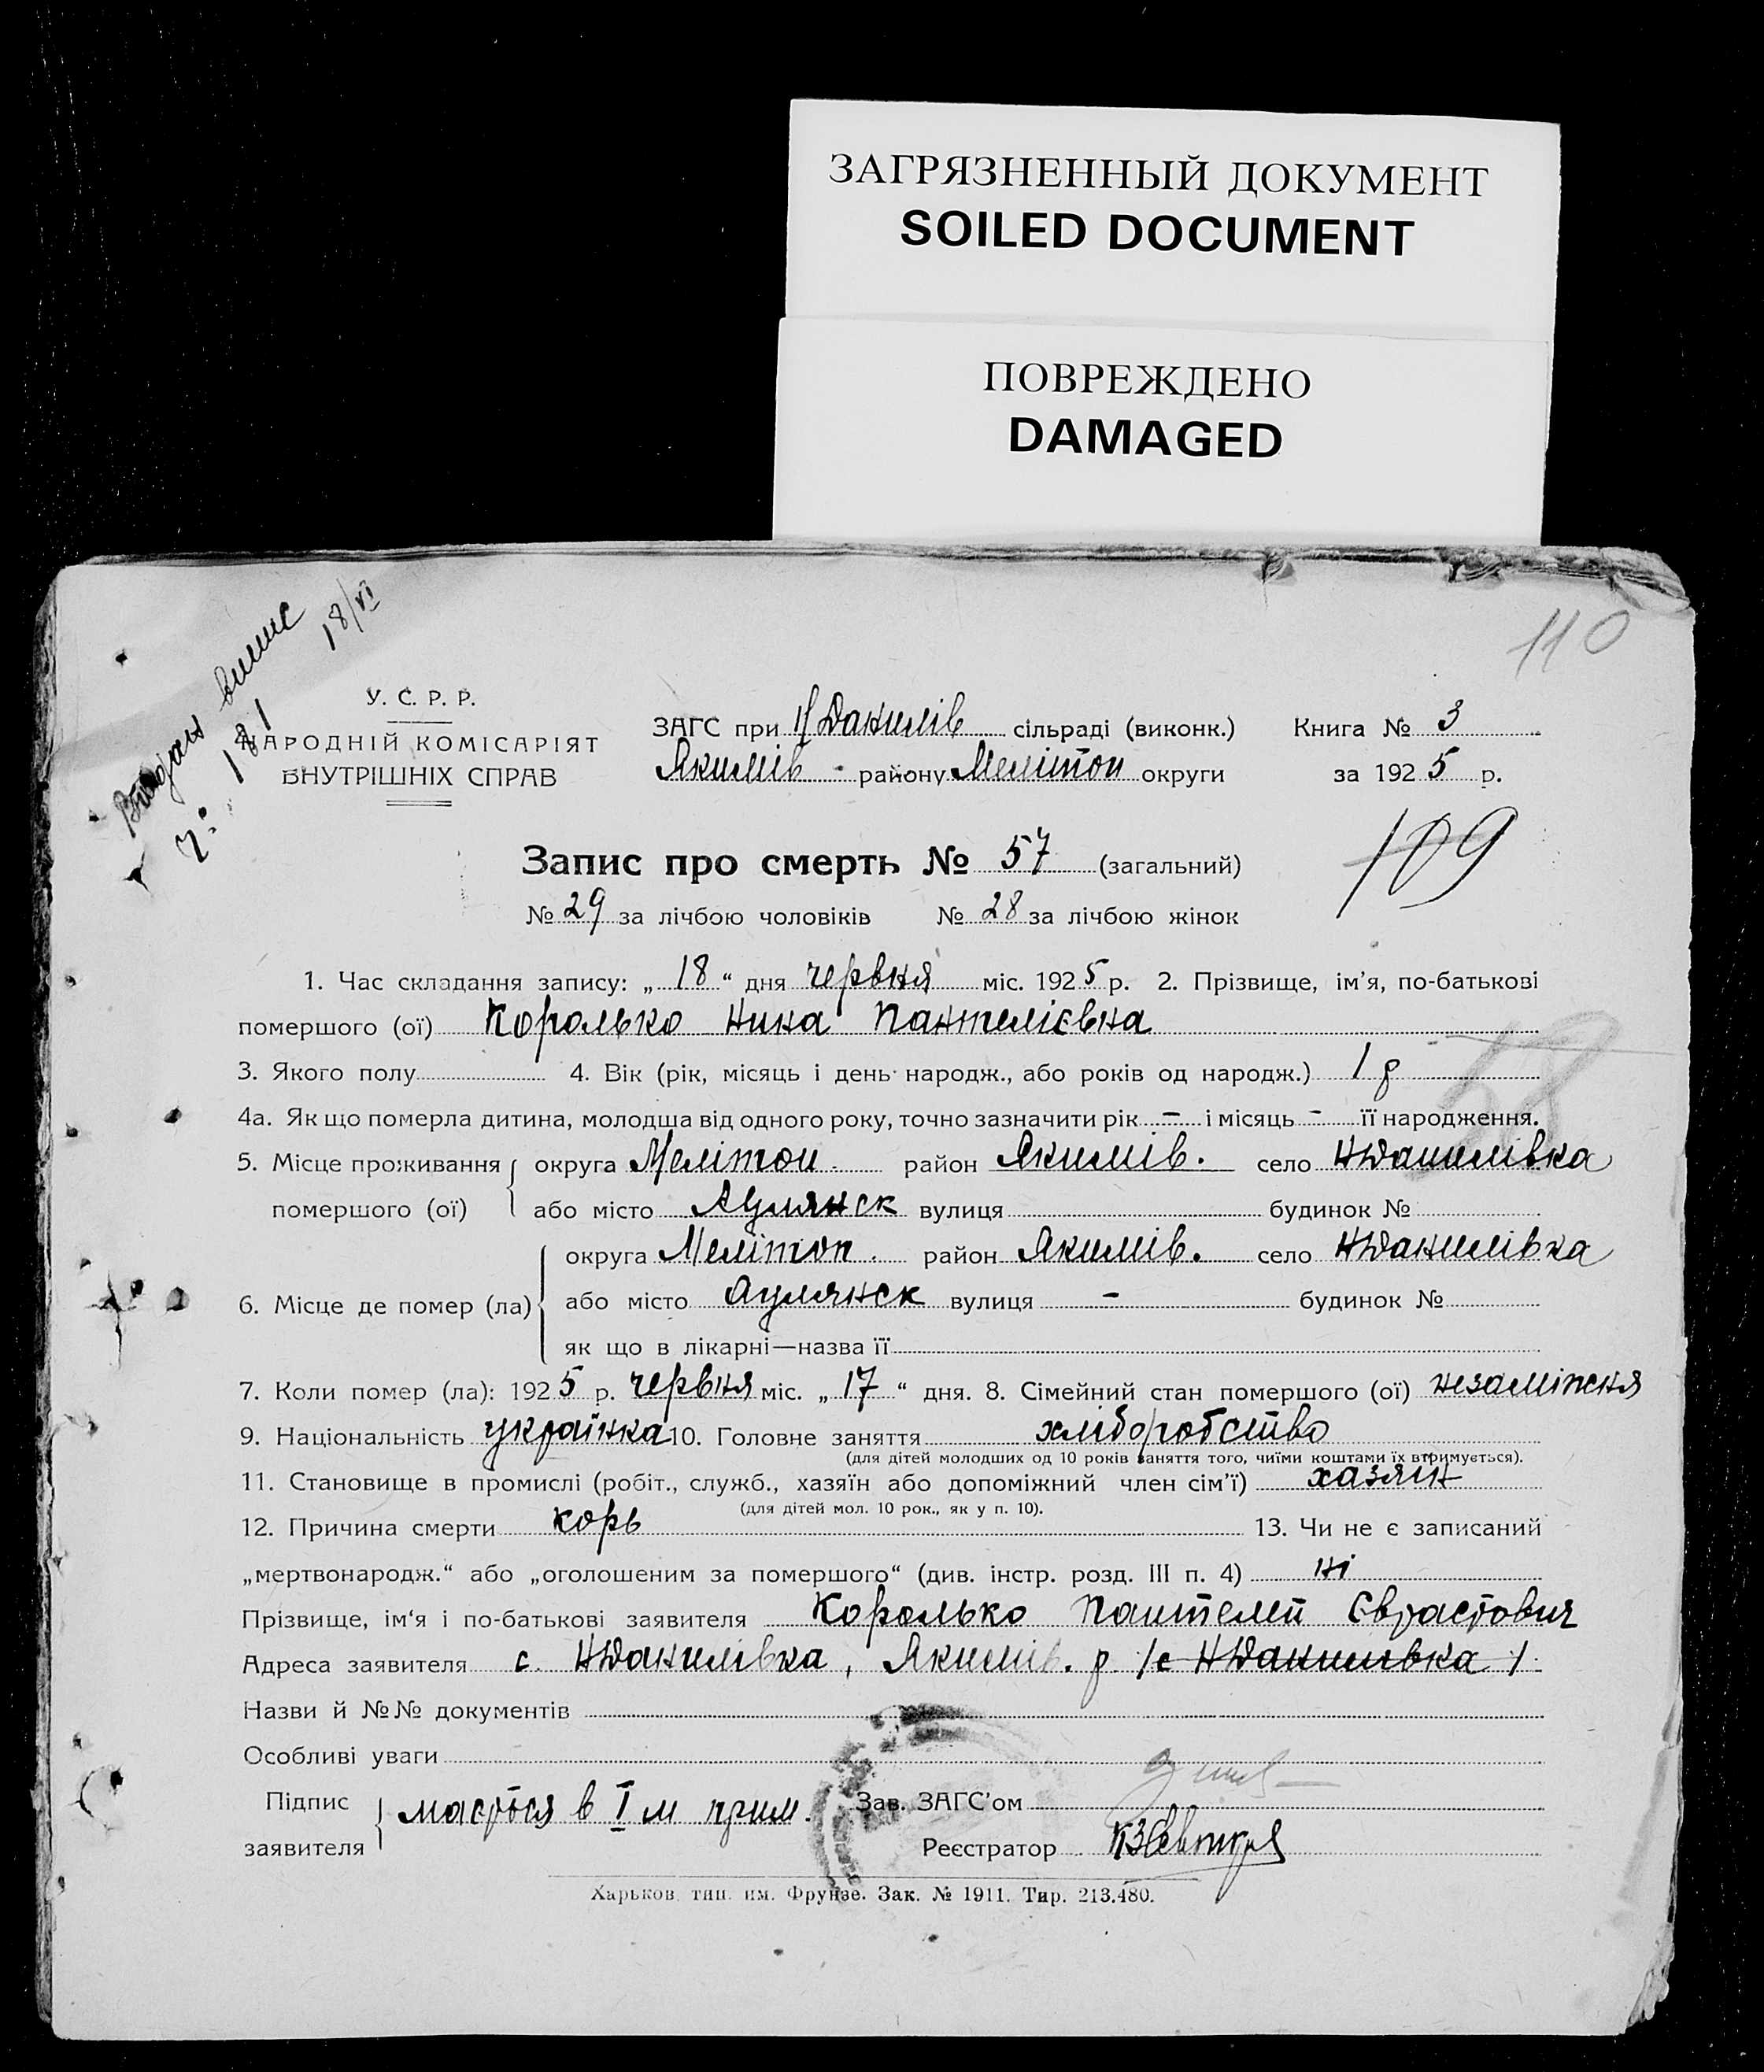 ЗАГРЯЗНЕННЫЙ ДОКУМЕНТ
SOILED DOCUMENT
ПОВРЕЖДЕНО
DAMAGED
110
випис 18/VI
ч. 181
У. С. Р. Р.
НАРОДНІЙ КОМІСАРІЯТ
ВНУТРІШНІХ СПРАВ
ЗАГС при НДанилів сільраді (виконк.) Книга № 3
Якимів - району Мелітоп округи за 1925 р.
109
Запис про смерть № 57 (загальний)
№ 29 за лічбою чоловіків № 28 за лічбою жінок
1. Час складання запису: „ 18 “ дня червня міс. 1925 р. 2. Прізвище, ім'я, по-батькові
помершого (ої) Королько Нина Пантелієвна
3. Якого полу 4. Вік (рік, місяць і день народж., або років од народж.) 1 р
58
4а. Як що померла дитина, молодша від одного року, точно зазначити рік – і місяць – її народження.
5. Місце проживання помершого (ої) округа Мелітоп. район Якимів. село НДанилівка
або місто Ацлянск вулиця будинок №
6. Місце де помер (ла) округа Мелітоп. район Якимів. село НДанилівка
або місто Ацлянск вулиця – будинок №
як що в лікарні—назва її
7. Коли помер (ла): 1925 р. червня міс. „ 17 “ дня. 8. Сімейний стан помершого (ої) незаміжня
9. Національність українка 10. Головне заняття хліборобство
(для дітей молодших од 10 років заняття того, чиїми коштами їх втримується).
11. Становище в промислі (робіт., служб., хазяїн або допоміжний член сім'ї) хазяин
(для дітей мол. 10 рок., як у п. 10).
12. Причина смерти корь 13. Чи не є записаний
„мертвонародж.“ або „оголошеним за помершого“ (див. інстр. розд. III п. 4) ні
Прізвище, ім'я і по-батькові заявителя Королько Пантелей
Адреса заявителя с. НДанилівка, Якимів. р. /с НДанилівка/
Назви й №№ документів
Особливі уваги
Підпис заявителя мається в I м прим. Зав. ЗАГС'ом
Реєстратор
Харьков, тип. им. Фрунзе. Зак. № 1911. Тир. 213.480.